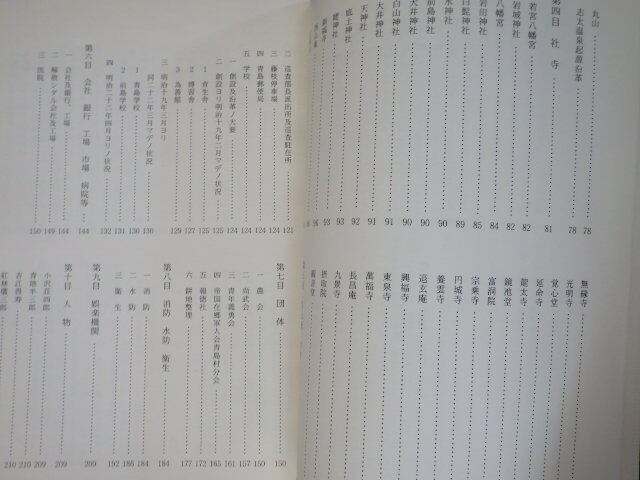 丸山 78
志太温泉起源沿革 78
第四目 社寺 81
若宮八幡宮 82
岩城神社 82
八幡宮 84
岩田神社 86
白髭神社 89
水神社 90
前島神社 90
大井神社 90
白山神社 91
大井神社 91
天神社 92
底土神社 93
無縁寺
光明寺
覚心堂
延命寺
龍太寺
鏡池堂
富洞院
宗乗寺
円城寺
養雲寺
追玄庵
興福寺
東泉寺
萬福寺
長昌庵
九景寺
摂取院
二 巡査部長派出所及巡査駐在所 121
三 藤枝停車場 124
四 青島郵便局 124
五 学校 124
一 創設及沿革ノ大要 124
二 創設ヨリ明治十九年二月マデノ状況 125
1 青生舎 125
2 博習舎 127
3 為善館 129
三 明治十九年三月ヨリ
同二十二年三月マデノ状況 130
1 青島学校 130
2 前島学校 131
四 明治二十二年四月ヨリノ状況 132
第六目 会社 銀行 工場 市場 病院等 144
一 会社及銀行、工場 144
三 医院 150
第七目 団体 150
一 農会 150
二 尚武会 157
三 青年義勇会 161
四 帝国在郷軍人会青島村分会 165
五 報徳社 172
六 耕地整理 177
第八目 消防 水防 衛生 184
一 消防 184
二 水防 186
三 衛生 192
第九目 娯楽機関 209
第十目 人物 209
小沢荘四郎 209
青地半三郎 210
吉江得寿 210